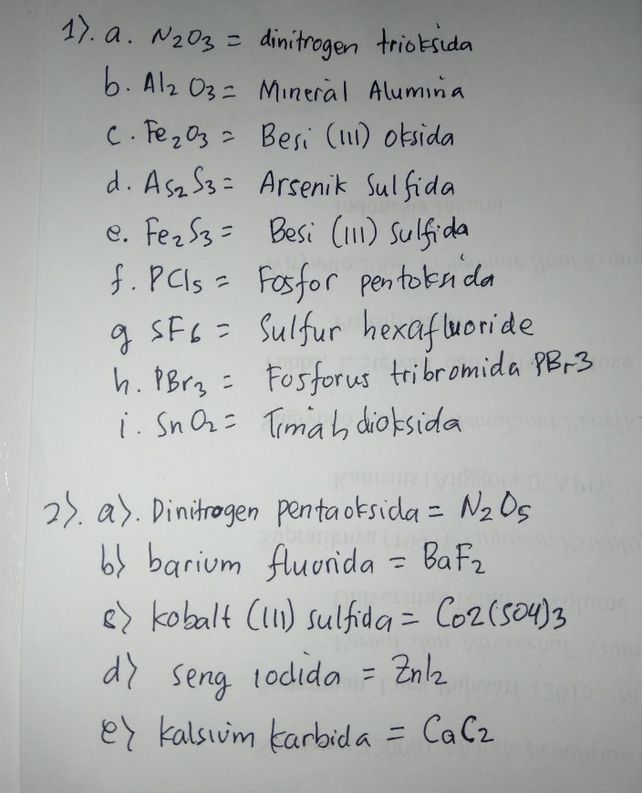 1). a. N2O3 = dinitrogen trioksida
b. Al2 O3 = Mineral Alumina
c. Fe2O3 = Besi (III) oksida
d. As2 S3 = Arsenik Sulfida
e. Fe2S3 = Besi (III) Sulfida
f. PCl5 = Fosfor pentoksida
g SF6 = Sulfur hexafluoride
h. PBr3 = Fosforus tribromida PBr3
i. SnO2 = Timah dioksida
2). a). Dinitrogen pentaoksida = N2O5
b) barium fluorida = BaF2
c) kobalt (III) sulfida = Co2(SO4)3
d) seng iodida = ZnI2
e) kalsium karbida = CaC2